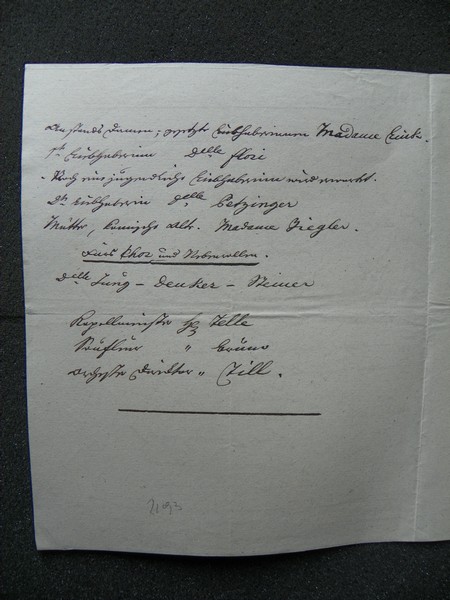 Anstands Damen, gesetzte Liebhaberinnen Madame
1te Liebhaberin Dlle Flori
Noch eine jugendliche Liebhaberin wird erwartet.
2te Liebhaberin Dlle Petzinger
Mütter, komische Alte. Madame Ziegler.
Fürs Chor und Nebenrollen.
Dlle Jung – Denker – Steiner
Kapellmeister H Telle
Souffleur " Brüno
Orchester Direktor " Till.